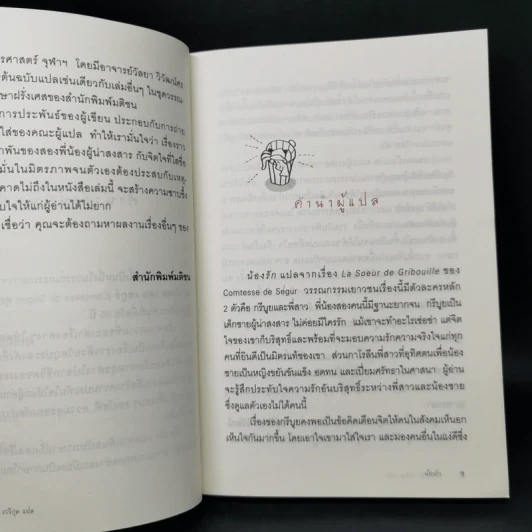 รศาสตร์ จุฬาฯ โดยมีอาจารย์วัลยา วิวัฒน์ศร
ต้นฉบับแปลเช่นเดียวกับเล่มอื่นๆ ในชุดวรรณ
ษาฝรั่งเศสของสำนักพิมพ์มติชน
การประพันธ์ของผู้เขียน ประกอบกับการถ่าย
ใส่ของคณะผู้แปล ทำให้เรามั่นใจว่า เรื่องราว
พันของสองพี่น้องผู้น่าสงสาร กับจิตใจที่ใสซื่อ
มั่นในมิตรภาพจนตัวเองต้องประสบกับเหตุ-
คาดไม่ถึงในหนังสือเล่มนี้ จะสร้างความซาบซึ้ง
บใจให้แก่ผู้อ่านได้ไม่ยาก
เชื่อว่า คุณจะต้องถามหาผลงานเรื่องอื่นๆ ของ
สำนักพิมพ์มติชน
คำนำผู้แปล
น้องรัก แปลจากเรื่อง La Soeur de Gribouille ของ
Comtesse de Ségur วรรณกรรมเยาวชนเรื่องนี้มีตัวละครหลัก
2 ตัวคือ กรีบูยและพี่สาว พี่น้องสองคนนี้มีฐานะยากจน กรีบูยเป็น
เด็กชายผู้น่าสงสาร ไม่ค่อยมีใครรัก แม้เขาจะทำอะไรเซ่อซ่า แต่จิต
ใจของเขาก็บริสุทธิ์และพร้อมที่จะมอบความรักความจริงใจแก่ทุก
คนที่ยินดีเป็นมิตรแท้ของเขา ส่วนกาโรลีนพี่สาวที่อุทิศตนเพื่อน้อง
ชายเป็นหญิงขยันขันแข็ง อดทน และเปี่ยมศรัทธาในศาสนา ผู้อ่าน
จะรู้สึกประทับใจความรักอันบริสุทธิ์ระหว่างพี่สาวและน้องชาย
ซึ่งดูแลตัวเองไม่ได้คนนี้
เรื่องของกรีบูยคงพอเป็นข้อคิดเตือนจิตใจให้คนในสังคมเห็นอก
เห็นใจกันมากขึ้น โดยเอาใจเขามาใส่ใจเรา และมองคนอื่นในแง่ดีซึ่ง
น้องรัก